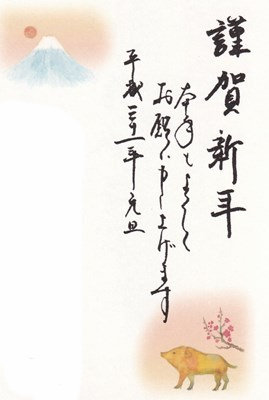 謹賀新年
本年もよろしく
お願い申し上げます
平成三十一年元旦